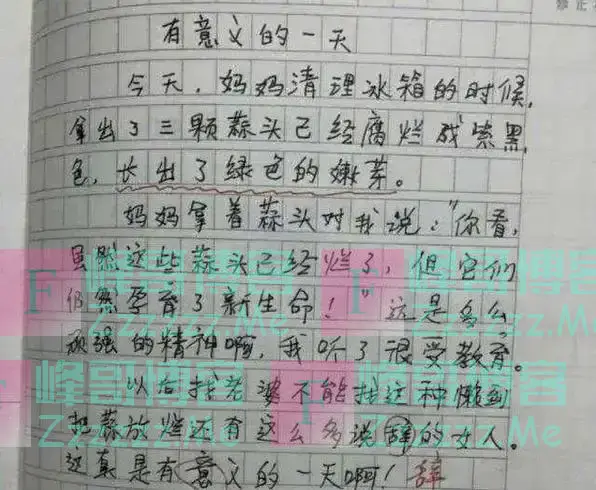 有意义的一天
今天,妈妈清理冰箱的时候,
拿出了三颗蒜头已经腐烂成紫黑
色,长出了绿色的嫩芽。
妈妈拿着蒜头对我说:"你看,
虽然这些蒜头已经烂了,但它们
仍然孕育了新生命!"这是多么
顽强的精神啊,我听了很受教育。
以后找老婆不能找这种懒到
把蒜放烂还有这么多说辞的女人。
这真是有意义的一天啊!辞
峰哥博客
Zzzzzz.Me
峰哥博客
Zzzzzz.Me
峰哥博客
Zzzzzz.Me
峰哥博客
Zzzzzz.Me